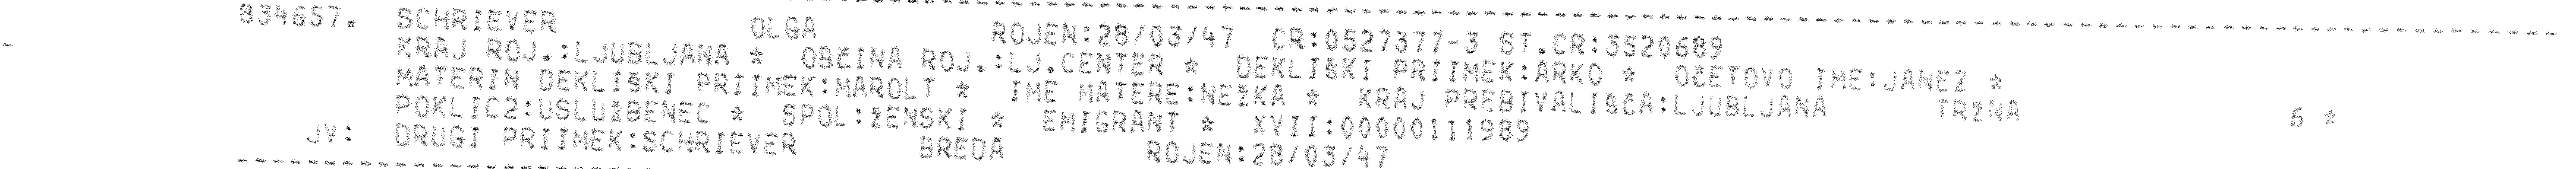 834657. SCHRIEVER OLGA ROJEN:28/03/47 CR:0527377-3 ST.CR:3520689
KRAJ ROJ.:LJUBLJANA * OBČINA ROJ.:LJ.CENTER * DEKLIŠKI PRIIMEK:ARKO * OČETOVO IME:JANEZ *
MATERIN DEKLIŠKI PRIIMEK:MAROLT * IME MATERE:NEŽKA * KRAJ PREBIVALIŠČA:LJUBLJANA TRŽNA 6 *
POKLIC2:USLUŽBENEC * SPOL:ŽENSKI * EMIGRANT * XVII:00000111989
JV: DRUGI PRIIMEK:SCHRIEVER BREDA ROJEN:28/03/47